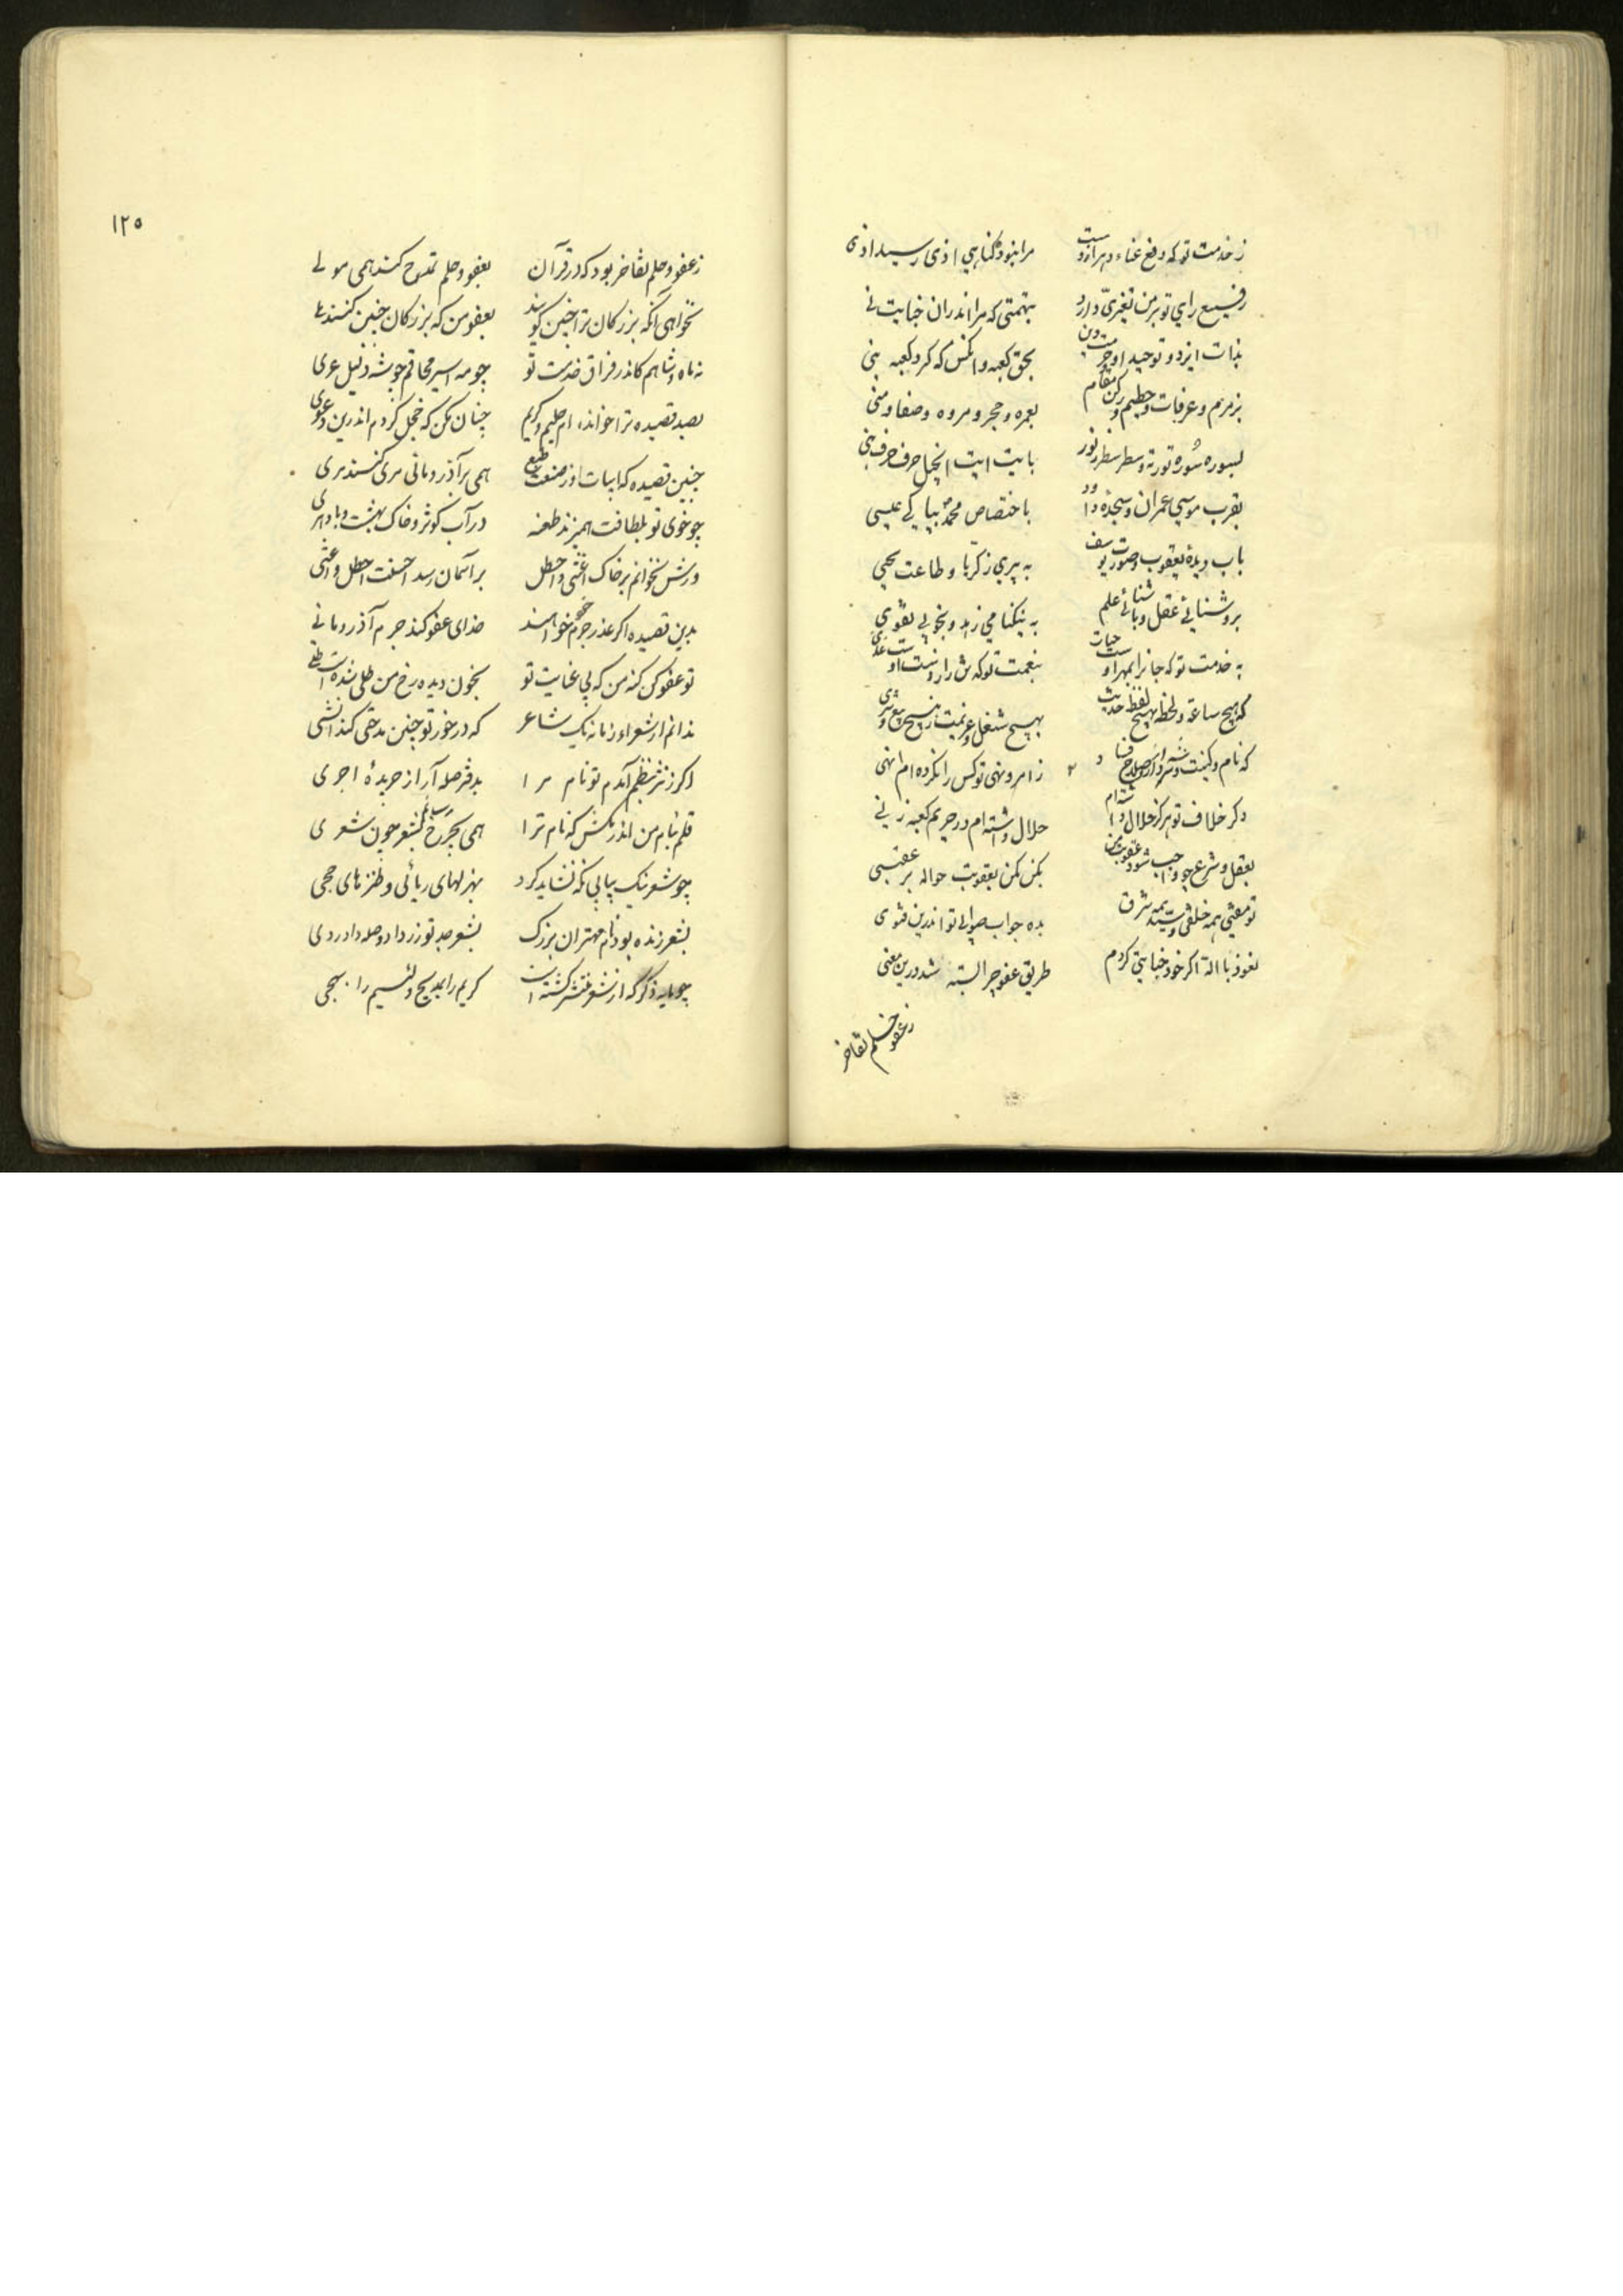 ز خدمت تو که دفع عناء دهر ازوست مرا نبود گناهی اذی رسید اذی
رفیع رای تو بر من تغیری دارد بتهمتی که مرا اندران خیانت نی
بذات ایزد و توحید او دین بحق کعبه و انکس که کرد کعبه بنی
بزمزم و عرفات و حطیم و رکن مقام بعمره و حجر و مروه و صفا و منی
بسوره سوره تورته و سطر سطر زبور بایت ایت انجیل حرف حرف نبی
بقرب موسی عمران و سجده داود باختصاص محمد بپاکی عیسی
باب دیده یعقوب و صورت یوسف به پیری زکریا و طاعت یحیی
بروشنایی عقل و باشنائی علم به نیکنامی زهد و بخوبی تقوی
به خدمت تو که جانرا بهر اوست حیات بنعمت تو که تن را ازوست غذی
که هیچ ساعة و لحظه بهیچ لفظ حدیث بهیچ شغل و عزیمت ز هیچ بیع و شری
که نام و کنیت ز امر و نهی تو کس را نکرده ام انهی
دگر خلاف تو هرگز حلال داشته ام حلال داشته ام در حریم کعبه زنی
بعقل و شرع چو واجب شود عقوبت من بکن بکن بعقوبت حواله بر عقبی
تو مفتی همه خلقی و سید همه شرق بده جواب صوابی تو اندرین فتوی
نعوذ بالله اگر خود خیانتی کردم طریق عفو چرا بسته شد درین معنی
ز عفو و حلم تفاخر
١٢٥
ز عفو و حلم تفاخر بود که در قرآن بعفو و حلم تمدح کند همی مولی
نخواهی انکه بزرکان ترا چنین گویند بعفو من که بزرکان چنین کنند
نه ماه و شاهم کاندر فراق خدمت تو چو مه اسیر محاقم چو شه ذلیل عری
بصد قصیده ترا خوانده ام حلیم و کریم چنان مکن که خجل کردم اندرین دعوی
چنین قصیده که ابیات او ز صنعت طبع همی بر آذر و مانی مری کنند مری
چو خوی تو بلطافت همیزند طعنه در آب کوثر و خاک بهشت و باد هری
ورش بخوانم بر خاک اعشی و اخطل بر آسمان رسد احسنت اخطل و اعشی
بدین قصیده اکر عذر جرم خود خواهند خدای عفو کند جرم آذر و مانی
تو عفو کن کنه من که بی عنایت تو بخون دیده رخ من طلی شدست طلی
ندانم از شعراء زمانه یک شاعر که در خور تو چنین مدحتی کند انشی
اکر ز نثر بنظم آمدم تو نام مرا بدفتر صله آر از جریدهٔ اجری
قلم بنام من اندر مکش که نام ترا همی بچرخ رسانم بشعر چون شعری
چو شعر نیک بیابی نکه نشاید کرد بهزلهای ربائی و طنزهای حجی
بشعر زنده بود نام مهتران بزرک بشعر صد تو زر داد و صله داد ردی
چو مایه ذکر که از شعر منتشر کشتست کریم را بمدیح و لئیم را بهجی